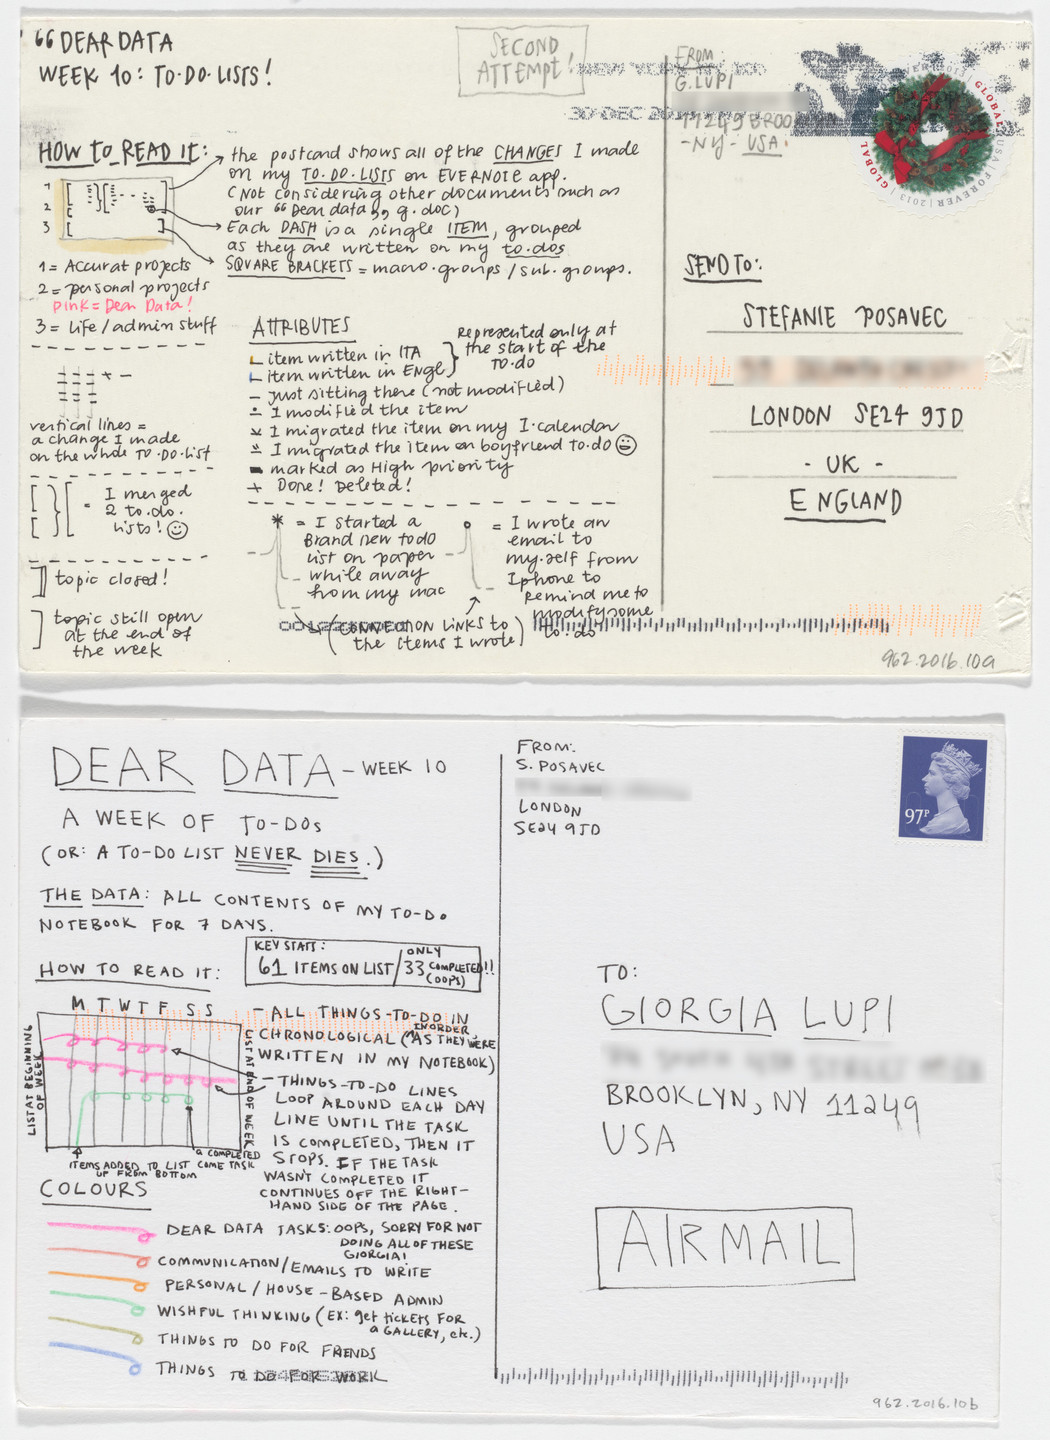 “DEAR DATA
WEEK 10: TO·DO·LISTS!
SECOND
ATTEMPT!
FROM
G. LUPI
11249 BROO
-NY- USA.
30 DEC
GLOBAL
USA
FOREVER
2013
GLOBAL
HOW TO READ IT:
1
2
3
the postcard shows all of the CHANGES I made
on my TO·DO·LISTS on EVERNOTE app.
(Not considering other documents such as
our “Dear data„ g.doc)
Each DASH is a single ITEM, grouped
as they are written on my to.dos
SQUARE BRACKETS = macro.groups / sub.groups.
1 = Accurat projects
2 = personal projects
pink = Dear Data!
3 = Life / admin stuff
+ –
vertical lines =
a change I made
on the whole TO·DO·LIST
= I merged
2 to.do.
lists! ☺
topic closed!
topic still open
at the end of
the week
ATTRIBUTES
item written in ITA
item written in Engl
Represented only at
the start of the
TO·DO
Just sitting there (not modified)
I modified the item
I migrated the item on my I·calendar
I migrated the item on boyfriend to.do ☺
marked as High priority
+ Done! Deleted!
* = I started a
Brand new todo
list on paper
while away
from my mac
= I wrote an
email to
my.self from
Iphone to
remind me to
modify some
to.do
(CONNECTION LINKS to
the items I wrote)
SEND TO:
STEFANIE POSAVEC
LONDON SE24 9JD
- UK -
ENGLAND
962.2016.10a
DEAR DATA - WEEK 10
A WEEK OF TO-DOs
(OR: A TO-DO LIST NEVER DIES.)
THE DATA: ALL CONTENTS OF MY TO-DO
NOTEBOOK FOR 7 DAYS.
KEY STATS:
61 ITEMS ON LIST / ONLY
33 COMPLETED!!
(OOPS)
HOW TO READ IT:
M T W T F S S
LIST AT BEGINNING
OF WEEK
LIST AT END OF WEEK
ITEMS ADDED TO LIST COME
UP FROM BOTTOM
a COMPLETED
TASK
– ALL THINGS-TO-DO IN
CHRONOLOGICAL (AS THEY WERE
IN ORDER
WRITTEN IN MY NOTEBOOK)
– THINGS-TO-DO LINES
LOOP AROUND EACH DAY
LINE UNTIL THE TASK
IS COMPLETED, THEN IT
STOPS. IF THE TASK
WASN'T COMPLETED IT
CONTINUES OFF THE RIGHT-
HAND SIDE OF THE PAGE.
COLOURS
DEAR DATA TASKS: OOPS, SORRY FOR NOT
DOING ALL OF THESE
GIORGIA!
COMMUNICATION/EMAILS TO WRITE
PERSONAL / HOUSE-BASED ADMIN
WISHFUL THINKING (EX: get tickets FOR
a GALLERY, etc.)
THINGS TO DO FOR FRIENDS
THINGS TO DO FOR WORK
FROM:
S. POSAVEC
LONDON
SE24 9JD
97P
TO:
GIORGIA LUPI
BROOKLYN, NY 11249
USA
AIRMAIL
962.2016.10b